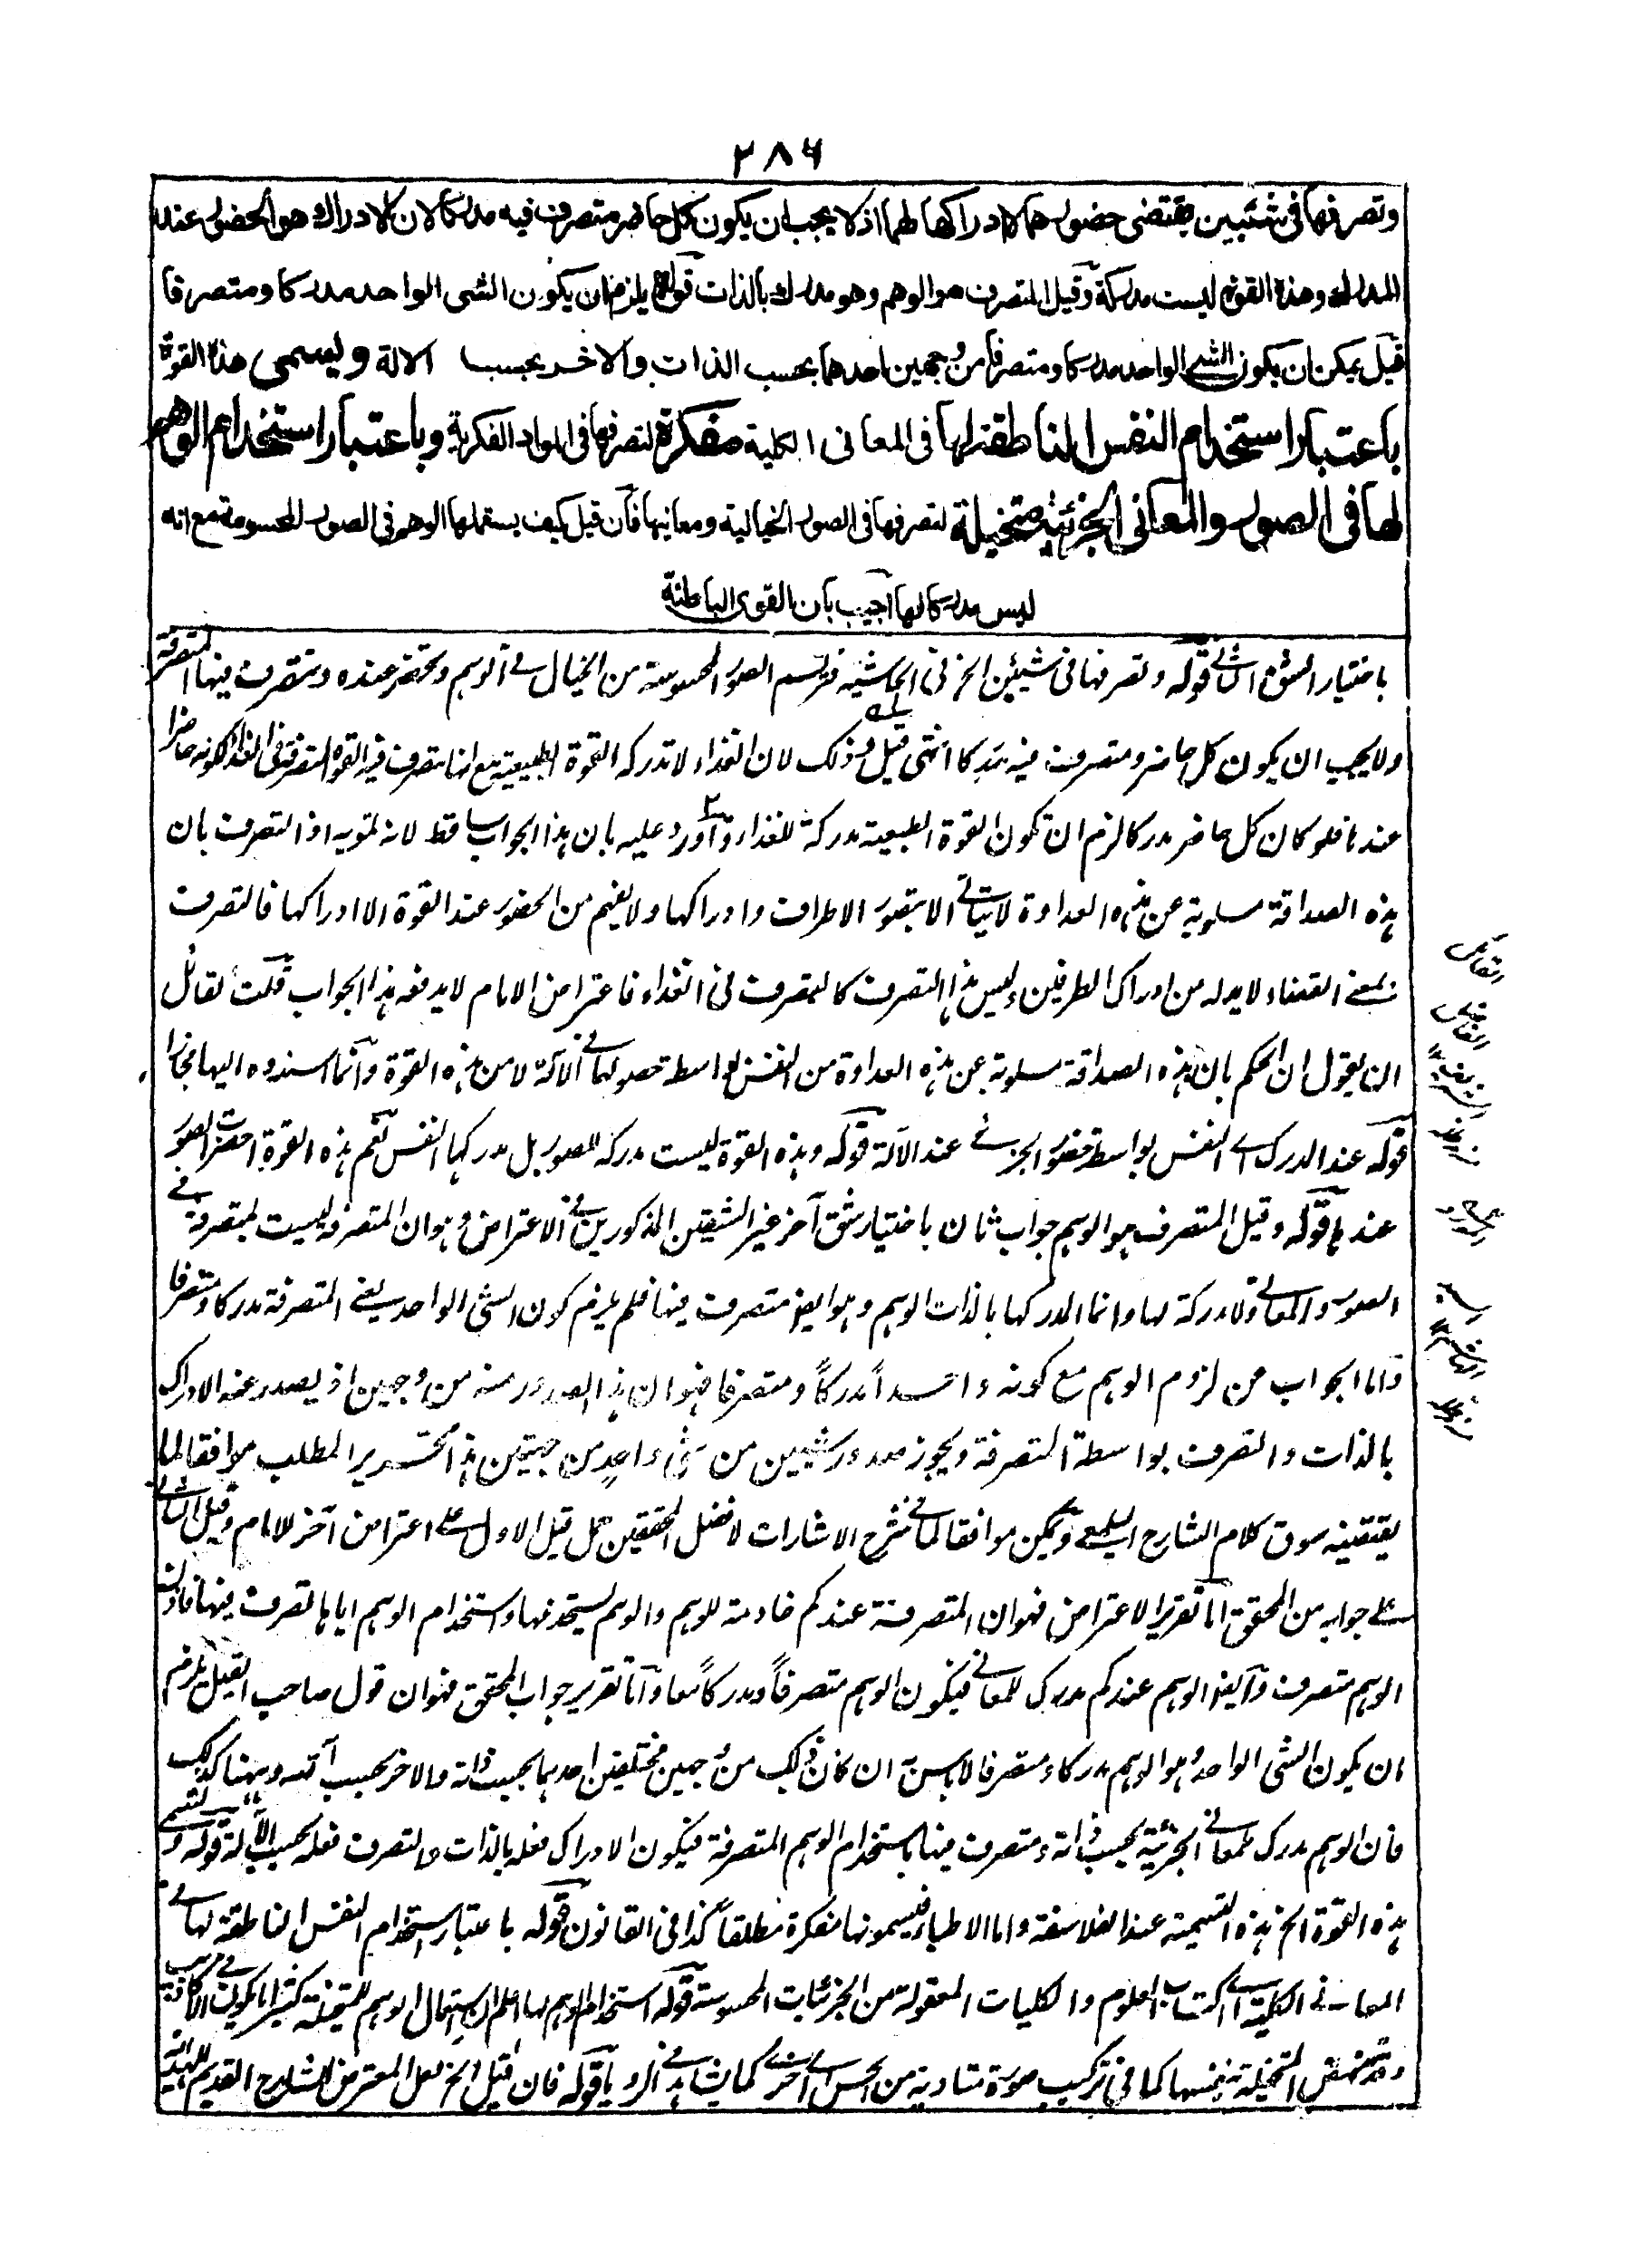 ٢٨٦
وتصرفها فى شيئين يقتضى حضورهما لا ادراكها لهما اذ لا يجب ان يكون كل حاضر متصرف فيه مدركا لان الادراك هو الحضور عند
المدرك وهذه القوة ليست مدركة وقيل المتصرف هو الوهم وهو مدرك بالذات قوله يلزم ان يكون الشى الواحد مدركا ومتصرفا
قيل يمكن ان يكون الشى الواحد مدركا ومتصرفا من وجهين احدهما بحسب الذات والاخر بحسب الالة ويسمى هذه القوة
باعتبار استخدام النفس الناطقة لها فى المعانى الكلية مفكرة لتصرفها فى المواد الفكرية وباعتبار استخدام الوهم
لها فى الصور والمعانى الجزئية متخيلة لتصرفها فى الصور الخيالية ومعانيها فان قيل كيف يستعملها الوهم فى الصور المحسوسة مع انه
ليس مدركا لها اجيب بان القوى الباطنة
باختيار الشق الثانى قوله وتصرفها فى شيئين الخ فى الحاشية فترتسم الصور المحسوسة من الخيال فى الوهم وتحضر عنده وتتصرف فيها المتصرفة
ولا يجب ان يكون كل حاضر ومتصرف فيه مدركا انتهى قيل وذلك لان الغذاء لا تدركه القوة الطبيعية مع انها تتصرف فيه القوة المتصرفة فى الغذاء لكونه حاضرا
عندها فلو كان كل حاضر مدركا لزم ان تكون القوة الطبيعية مدركة للغذاء واورد عليه بان هذا الجواب ساقط لانه تمويه اذ التصرف بان
هذه الصداقة مسلوبة عن هذه العداوة لا يتاتى الا بتصور الاطراف وادراكها ولا يفهم من الحضور عند القوة الا ادراكها فالتصرف
بمعنى القضاء لا بد له من ادراك الطرفين وليس هذا التصرف كالتصرف فى الغذاء فاعتراض الامام لا يدفعه هذا الجواب قلت لقائل
ان يقول ان الحكم بان هذه الصداقة مسلوبة عن هذه العداوة من النفس بواسطة حصولهما فى الآلة لا من هذه القوة وانما اسندوه اليها مجازا
قوله عند المدرك اى النفس بواسطة حضور الجزئى عند الآلة قوله وهذه القوة ليست مدركة للصور بل مدركها النفس نعم هذه القوة احضرت الصور
عندها قوله وقيل المتصرف هو الوهم جواب ثان باختيار شق آخر غير الشقين المذكورين فى الاعتراض وهو ان المتصرفة ليست بمتصرفة فى
الصور والمعانى ولا مدركة لها وانما المدركها بالذات الوهم وهو ايضا متصرف فيها فلم يلزم كون الشئ الواحد يعنى المتصرفة مدركا ومتصرفا
واما الجواب عن لزوم الوهم مع كونه واحدا مدركاً ومتصرفا فهو ان هذا الصدور منه من وجهين اذ يصدر عنه الادراك
بالذات والتصرف بواسطة المتصرفة ويجوز صدور شيئين من شئ واحد من جهتين هذا تحرير المطلب موافقا لما
يقتضيه سوق كلام الشارح العلامة ويمكن موافقا لما فى شرح الاشارات لافضل المحققين حمل قيل الاول على اعتراض آخر للامام وقيل الثانى
على جوابه من المحقق اما تقرير الاعتراض فهو ان المتصرفة عندكم خادمة للوهم والوهم يستخدمها واستخدام الوهم اياها تصرف فيها فاذن
الوهم متصرف وايضا الوهم عندكم مدرك للمعانى فيكون الوهم متصرفاً ومدركاً معا واما تقرير جواب المحقق فهو ان قول صاحب القيل يلزم
ان يكون الشئ الواحد وهو الوهم مدركا ومتصرفا لا باس به ان كان ذلك من وجهين مختلفين احدهما بحسب ذاته والاخر بحسب آلته وههنا كذلك
فان الوهم مدرك للمعانى الجزئية بحسب ذاته ومتصرف فيها باستخدام الوهم المتصرفة فيكون الادراك فعله بالذات والتصرف فعله بحسب الآلة قوله وتسمى
هذه القوة الخ هذه التسمية عند الفلاسفة واما الاطباء فيسمونها مفكرة مطلقا كذا فى القانون قوله باعتبار استخدام النفس الناطقة لها فى
المعانى الكلية اى اكتساب العلوم والكليات المعقولة من الجزئيات المحسوسة قوله استخدام الوهم لها اعلم ان استعمال الوهم للمتخيلة كثيرا ما يكون فى
وقد تنهض المتخيلة بنفسها كما فى تركيب صورة متادية من الحس الى اخرى كما يشاهد فى الرويا قوله فان قيل الخ لعل المعترض الشارح القديم للهداية